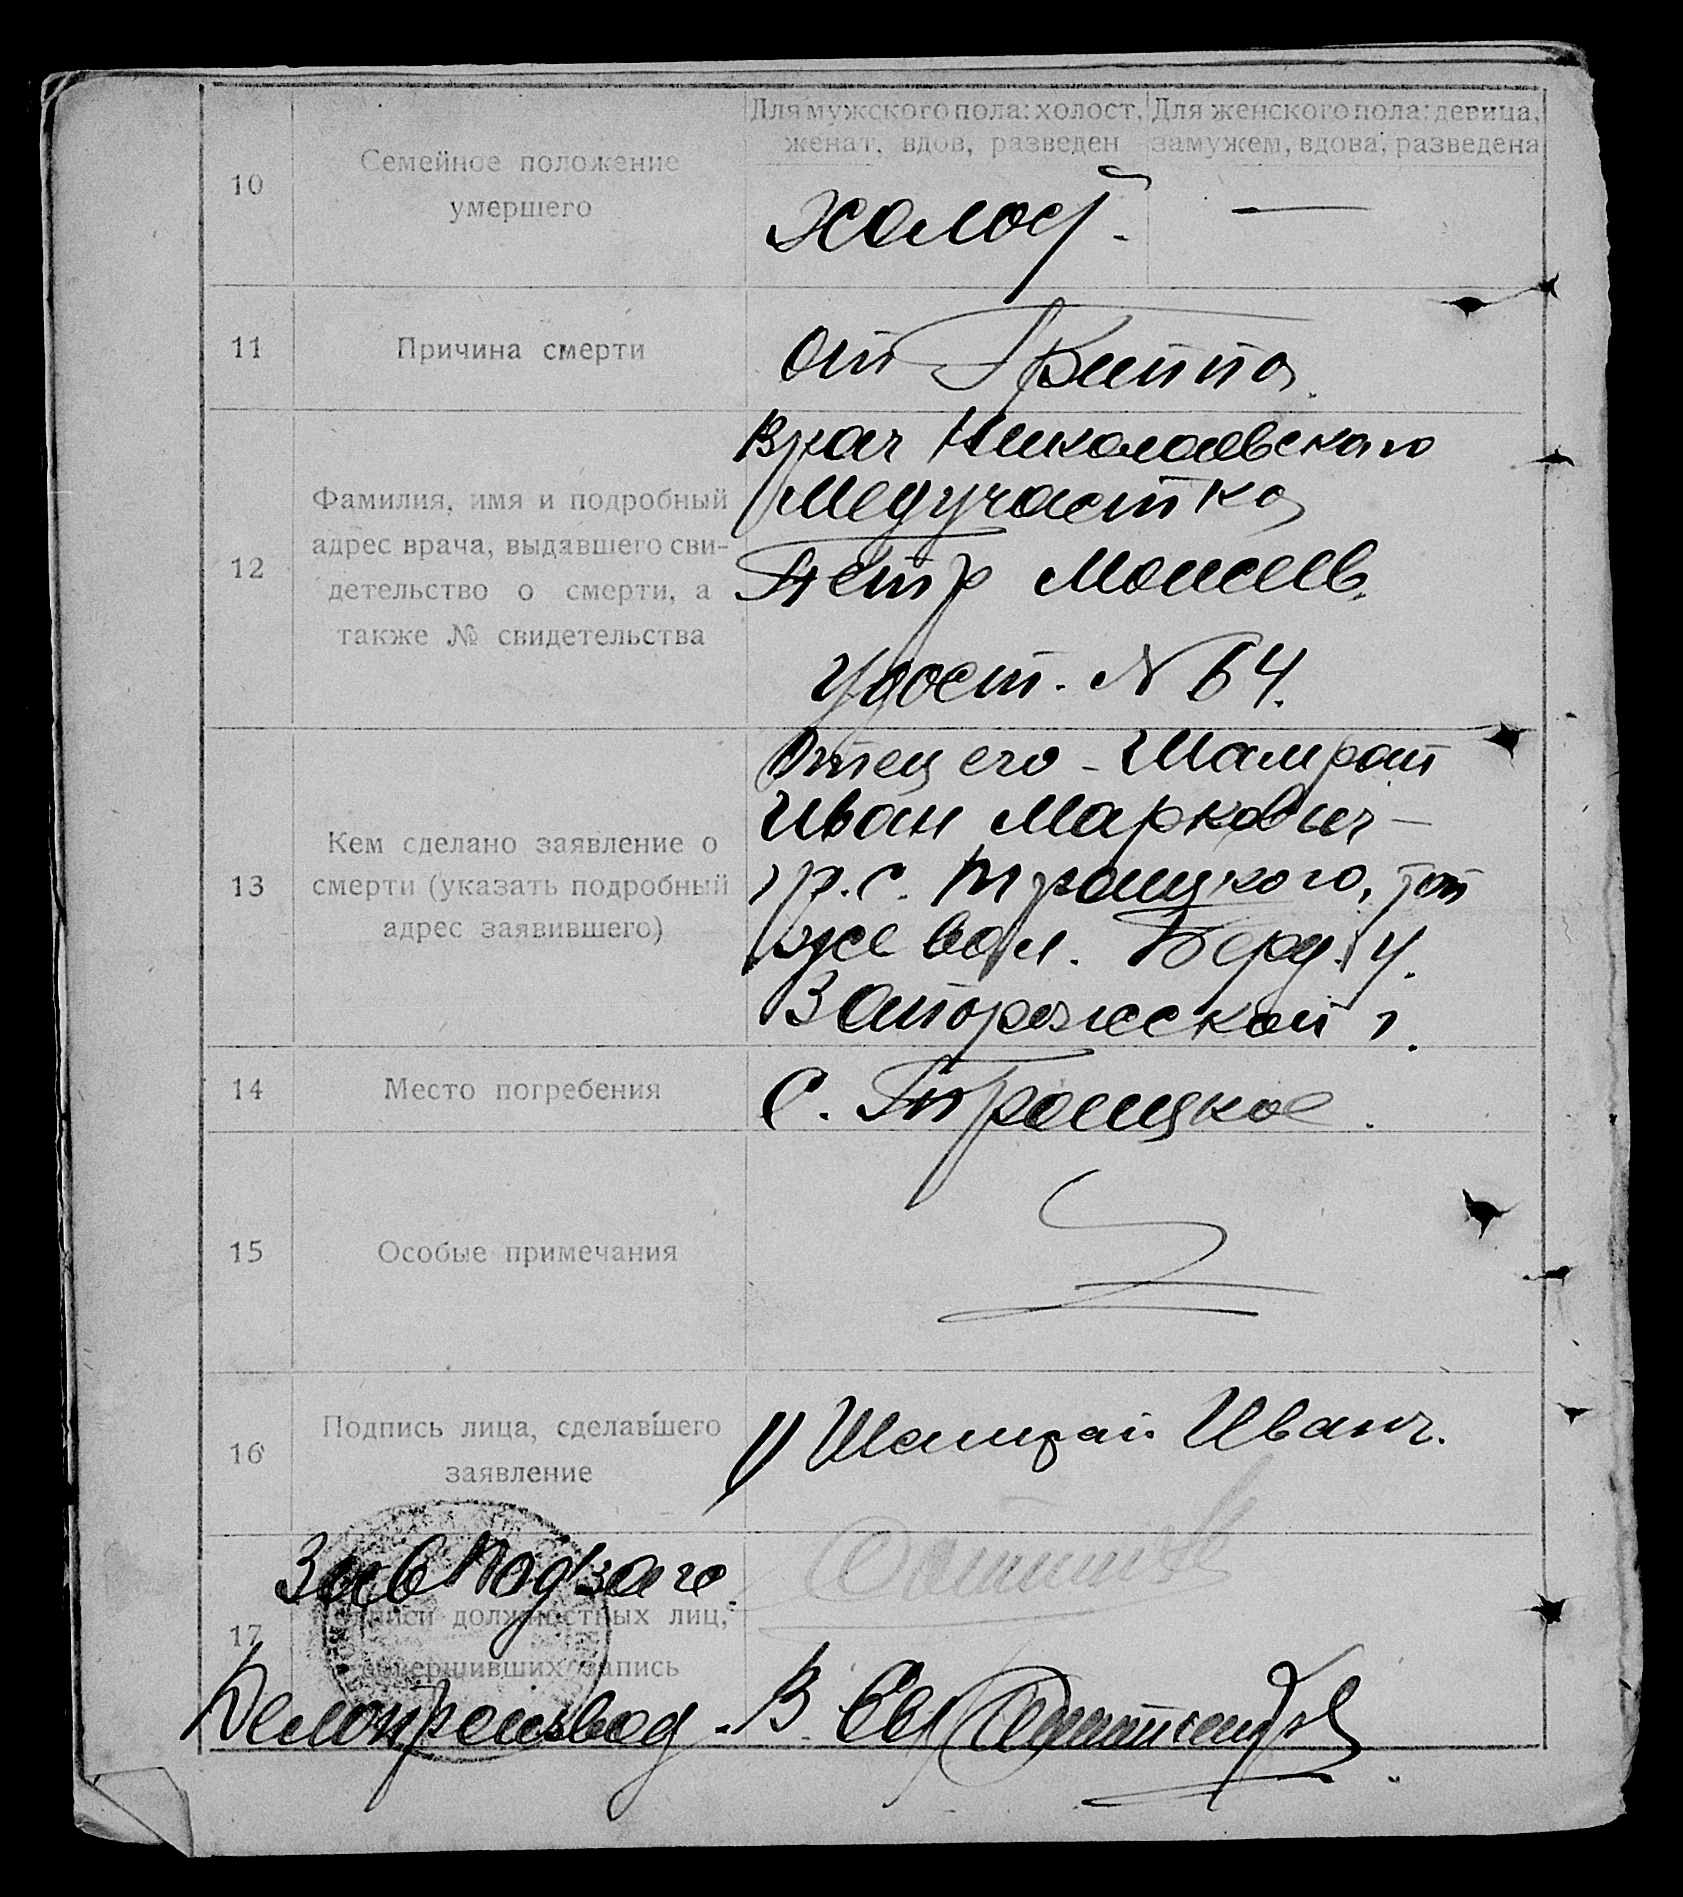 Для мужского пола: холост, женат, вдов, разведен
Для женского пола: девица, замужем, вдова, разведена
10
Семейное положение
умершего
холост.
—
11
Причина смерти
от Гриппа
12
Фамилия, имя и подробный
адрес врача, выдавшего сви-
детельство о смерти, а
также № свидетельства
Врач Николаевского
Медучастка
Петр Моисеев
Удост. N 64.
13
Кем сделано заявление о
смерти (указать подробный
адрес заявившего)
Отец его - Шамрай
Иван Маркович -
гр. с. Троицкого, той
же вол. Берд. у.
Запорожской г.
14
Место погребения
С. Троицкое.
15
Особые примечания
16
Подпись лица, сделавшего
заявление
Шамрай Иван
17
Подписи должностных лиц,
совершивших запись
Зав Подзаго
Делопроизвод.